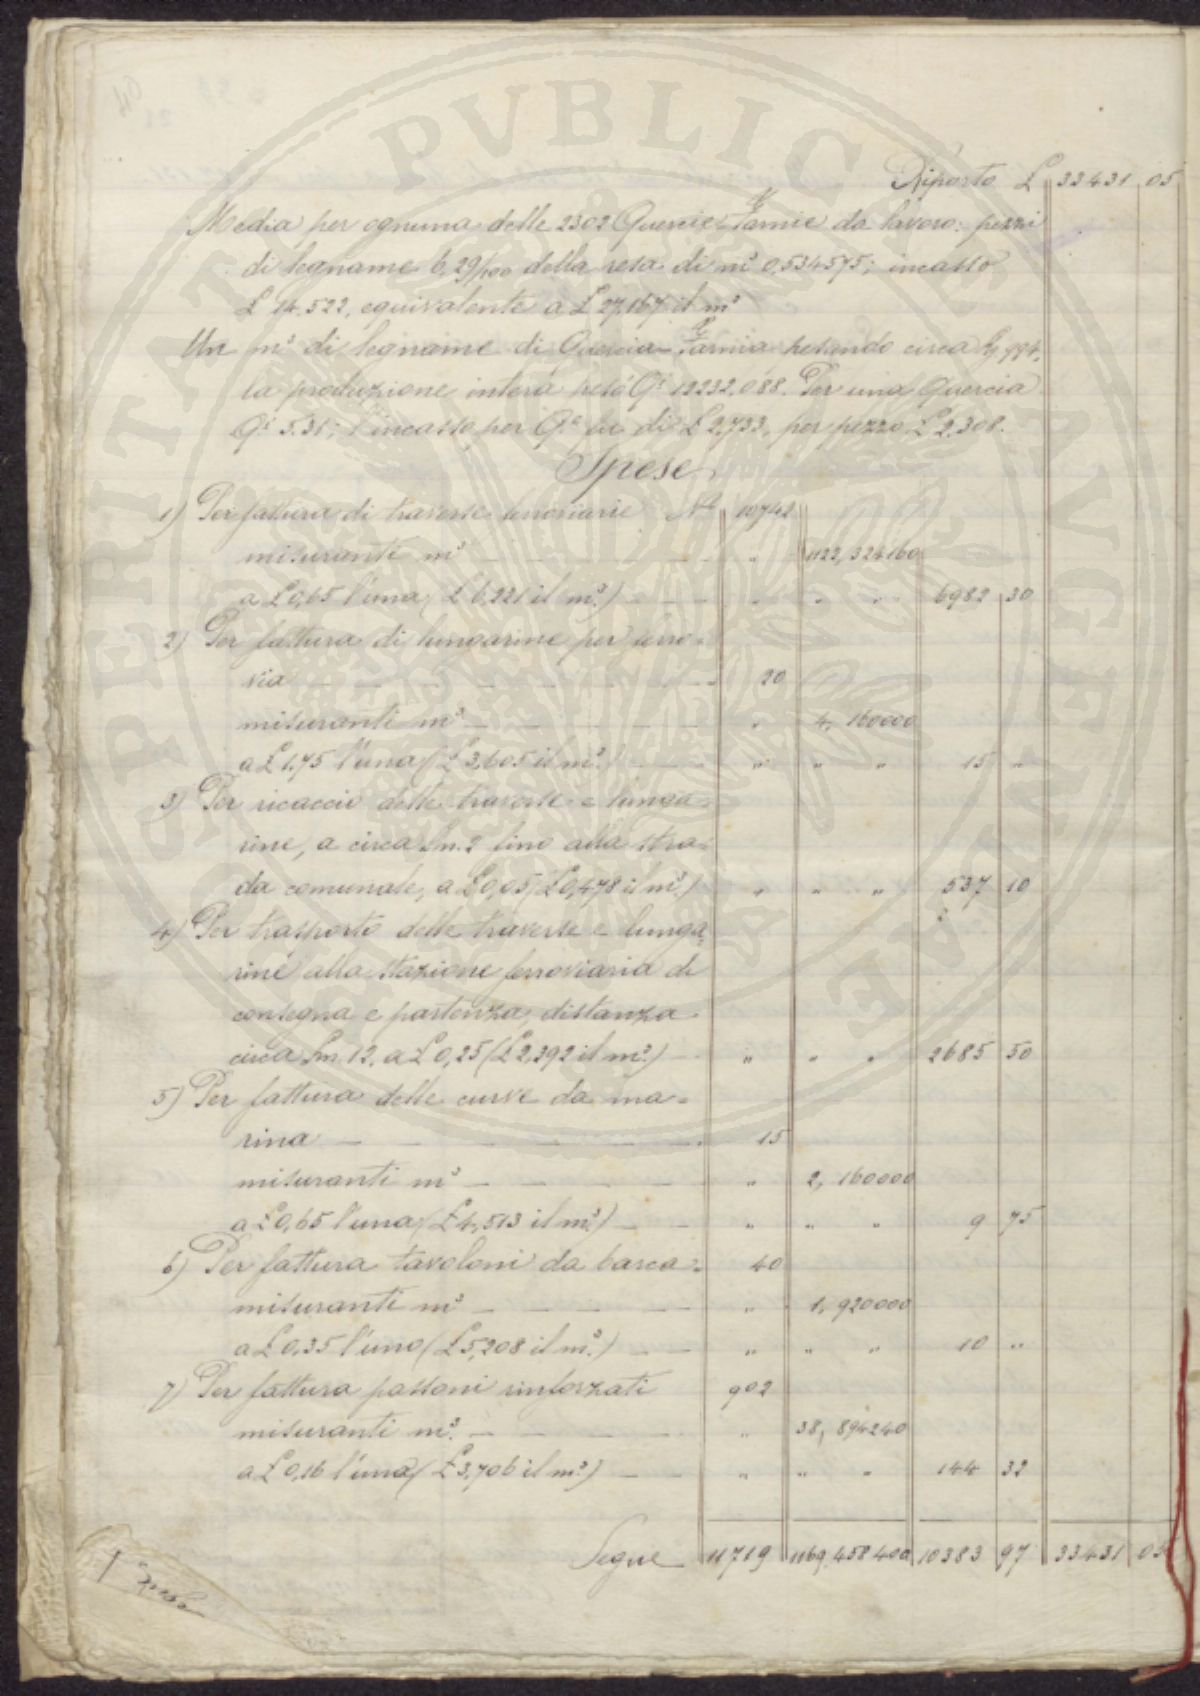 Riporto £ 33431 05
Media per ognuna delle 2302 Quercie-Farnie da lavoro: pezzi
di legname 6,29/100 della resa di m³ 0,534575; incasso
£ 14.522, equivalente a £ 27,167 il m³
Un m³ di legname di Quercia-Farnia pesando circa Kg 994,
la produzione intera pesò Qⁱ 12232,088. Per una Quercia
Qⁱ 5.31; l'incasso per Qˡᵉ fu di £ 2,733, per pezzo £ 2,308.
Spese
1) Per fattura di traverse ferroviarie Nº 10742
misuranti m³ — — — " 1122,324160
a £ 0,65 l'una (£ 6,221 il m³) — — " " " 6982 30
2) Per fattura di lungarine per ferro=
via — — — — 20
misuranti m³ — — — " 4,160000
a £ 1,75 l'una (£ 3,605 il m³) — — " " " 15 "
3) Per ricaccio delle traverse e lunga=
rine, a circa Km. 2 fino alla stra=
da comunale, a £ 0,05 (£ 0,478 il m³) " " " 537 10
4) Per trasporto delle traverse e lunga=
rine alla stazione ferroviaria di
consegna e partenza, distanza
circa Km 12, a £ 0,25 (£ 2,392 il m³) — " " " 2685 50
5) Per fattura delle curve da ma=
rina — — — — 15
misuranti m³ — — — " 2,160000
a £ 0,65 l'una (£ 4,513 il m³) — — " " " 9 75
6) Per fattura tavoloni da barca = 40
misuranti m³ — — — " 1,920000
a £ 0,35 l'uno (£ 5,208 il m³) — — " " " 10 "
7) Per fattura passoni rinforzati 902
misuranti m³ — — — " 38,894240
a £ 0,16 l'una (£ 3,706 il m³) — — " " " 144 32
Segue 11719 1169,458400 10383 97 33431 05
1ª
PROSPERITATI PUBLICAE AUGENDAE